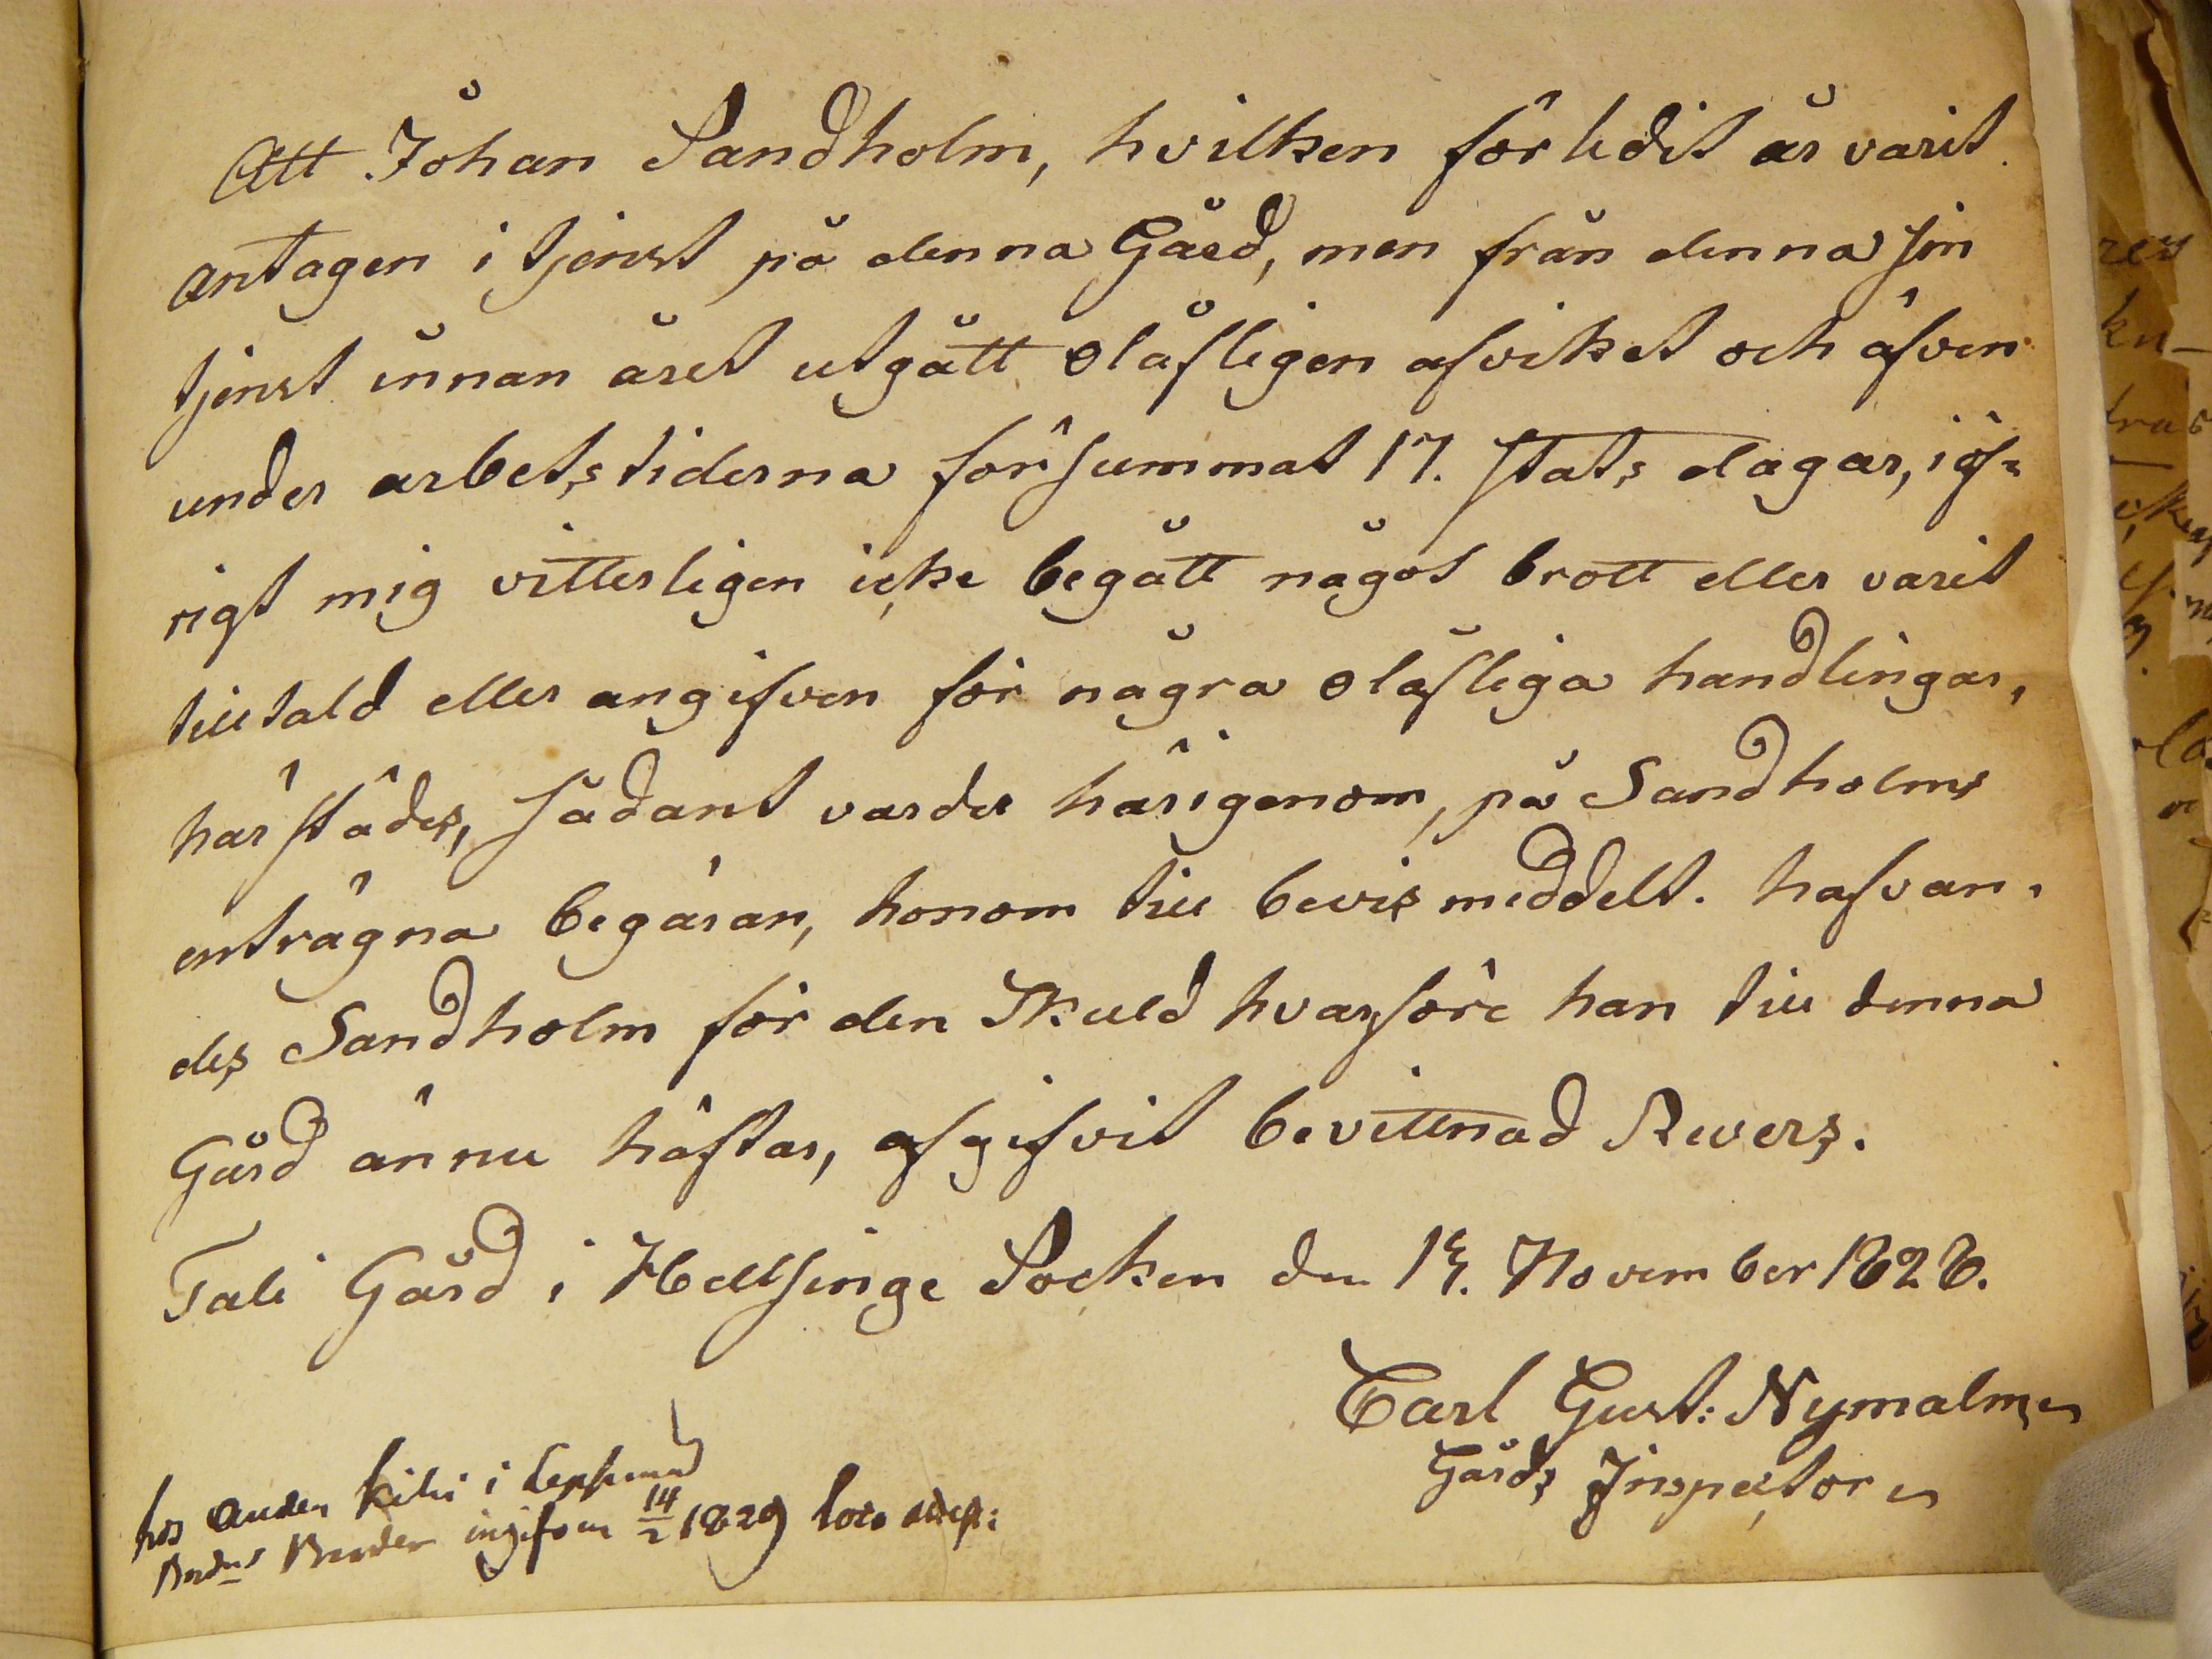 Att Johan Sandholm, hvilken förledit år varit
antagen i tjenst på denna Gård, men från denna sin
tjenst innan året utgått olåfligen afviket och äfven
under arbets tiderna försummat 17. stats dagar, iöf-
rigt mig vitterligen icke begått något brott eller varit
tilltald eller angifven för några olåfliga handlingar,
härstädes, sådant varder härigenom, på Sandholms
enträgna begäran, honom till bevis meddelt. hafvan-
des Sandholm för den Skuld hvarföre han till denna
Gård ännu häftar, afgifvit bevittnad Revers.
Tali Gård i Hellsinge Socken den November 1828.
Carl Gust: Nymalm
Gårds Inspector
hos i
ingifven 14/2 1829 loco